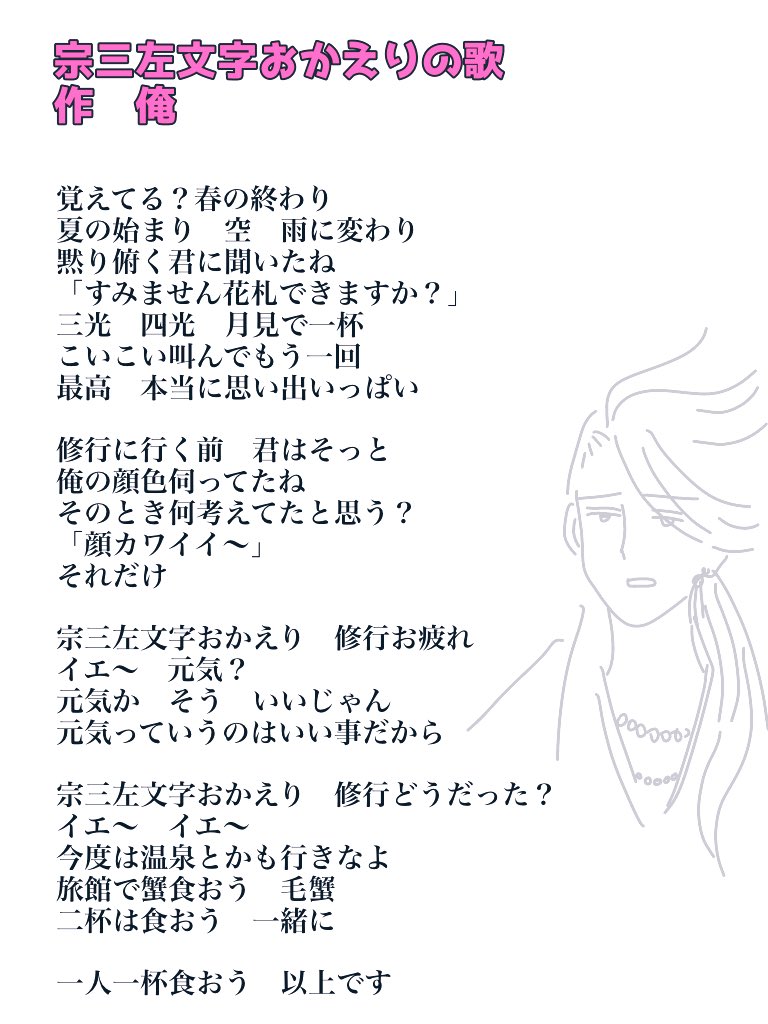 宗三左文字おかえりの歌
作　俺
覚えてる？春の終わり
夏の始まり　空　雨に変わり
黙り俯く君に聞いたね
「すみません花札できますか？」
三光　四光　月見で一杯
こいこい叫んでもう一回
最高　本当に思い出いっぱい
修行に行く前　君はそっと
俺の顔色伺ってたね
そのとき何考えてたと思う？
「顔カワイイ〜」
それだけ
宗三左文字おかえり　修行お疲れ
イエ〜　元気？
元気か　そう　いいじゃん
元気っていうのはいい事だから
宗三左文字おかえり　修行どうだった？
イエ〜　イエ〜
今度は温泉とかも行きなよ
旅館で蟹食おう　毛蟹
二杯は食おう　一緒に
一人一杯食おう　以上です